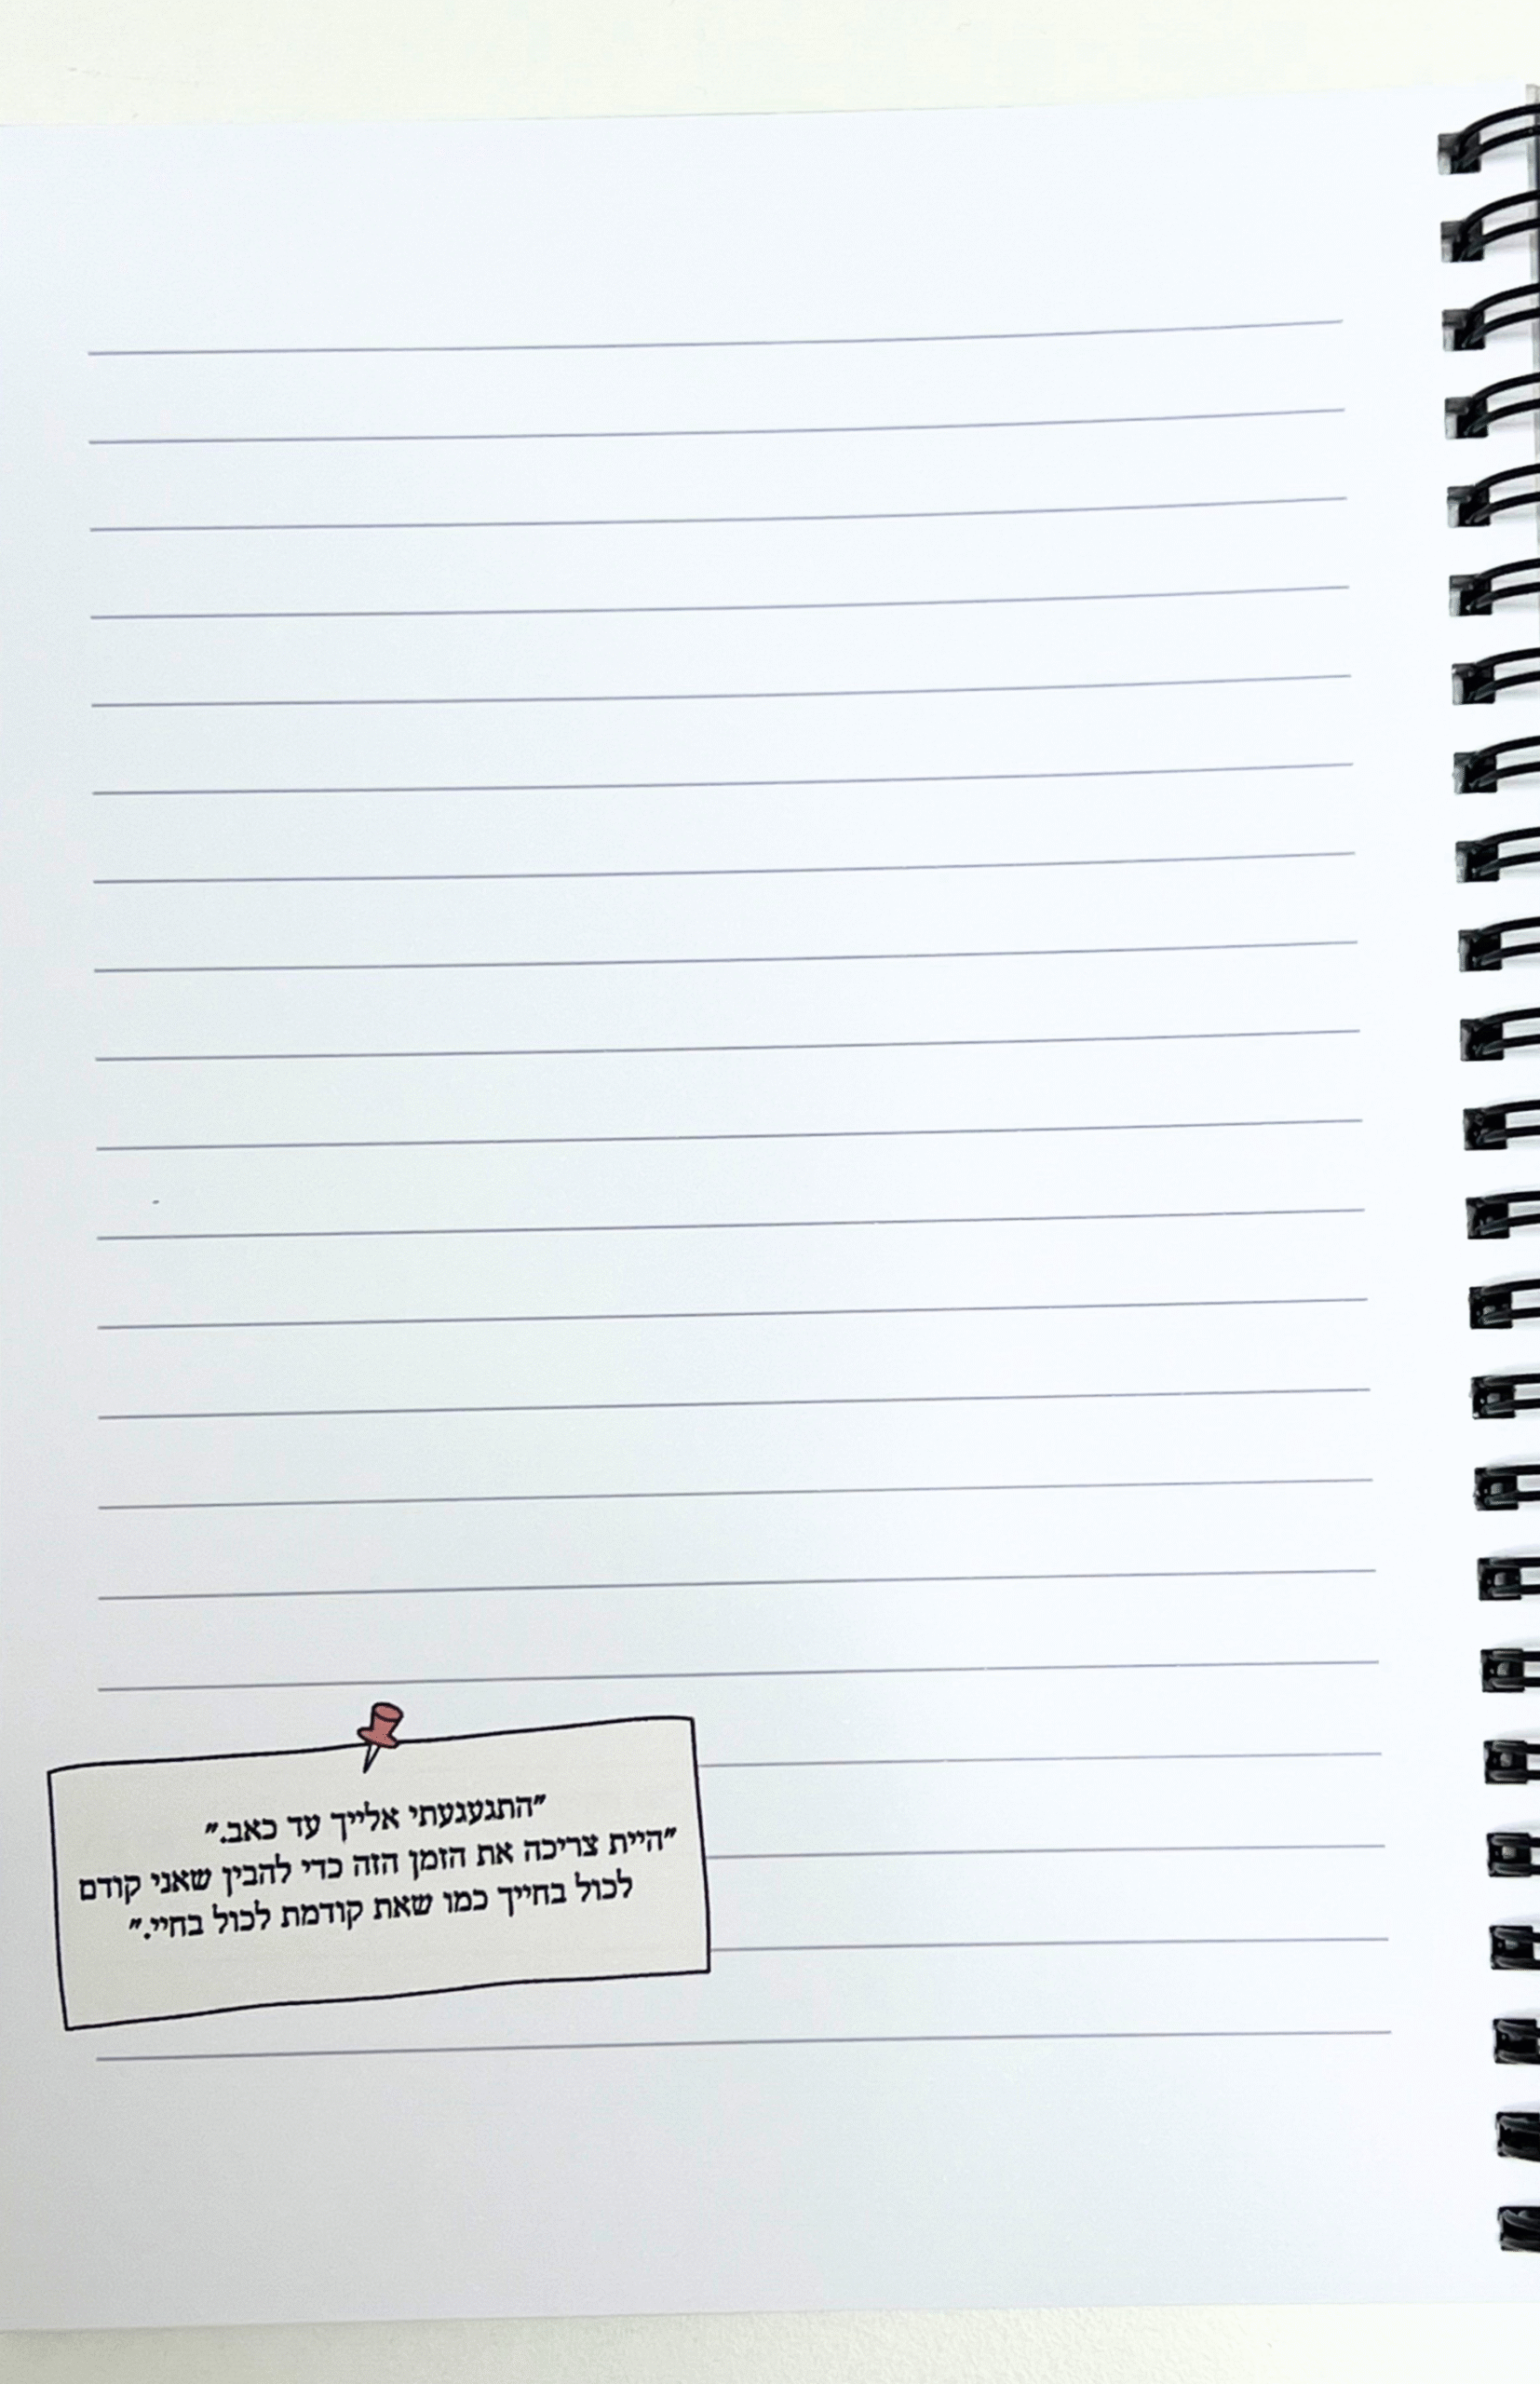 "התגעגעתי אלייך עד כאב."
"היית צריכה את הזמן הזה כדי להבין שאני קודם
לכול בחייך כמו שאת קודמת לכול בחיי."